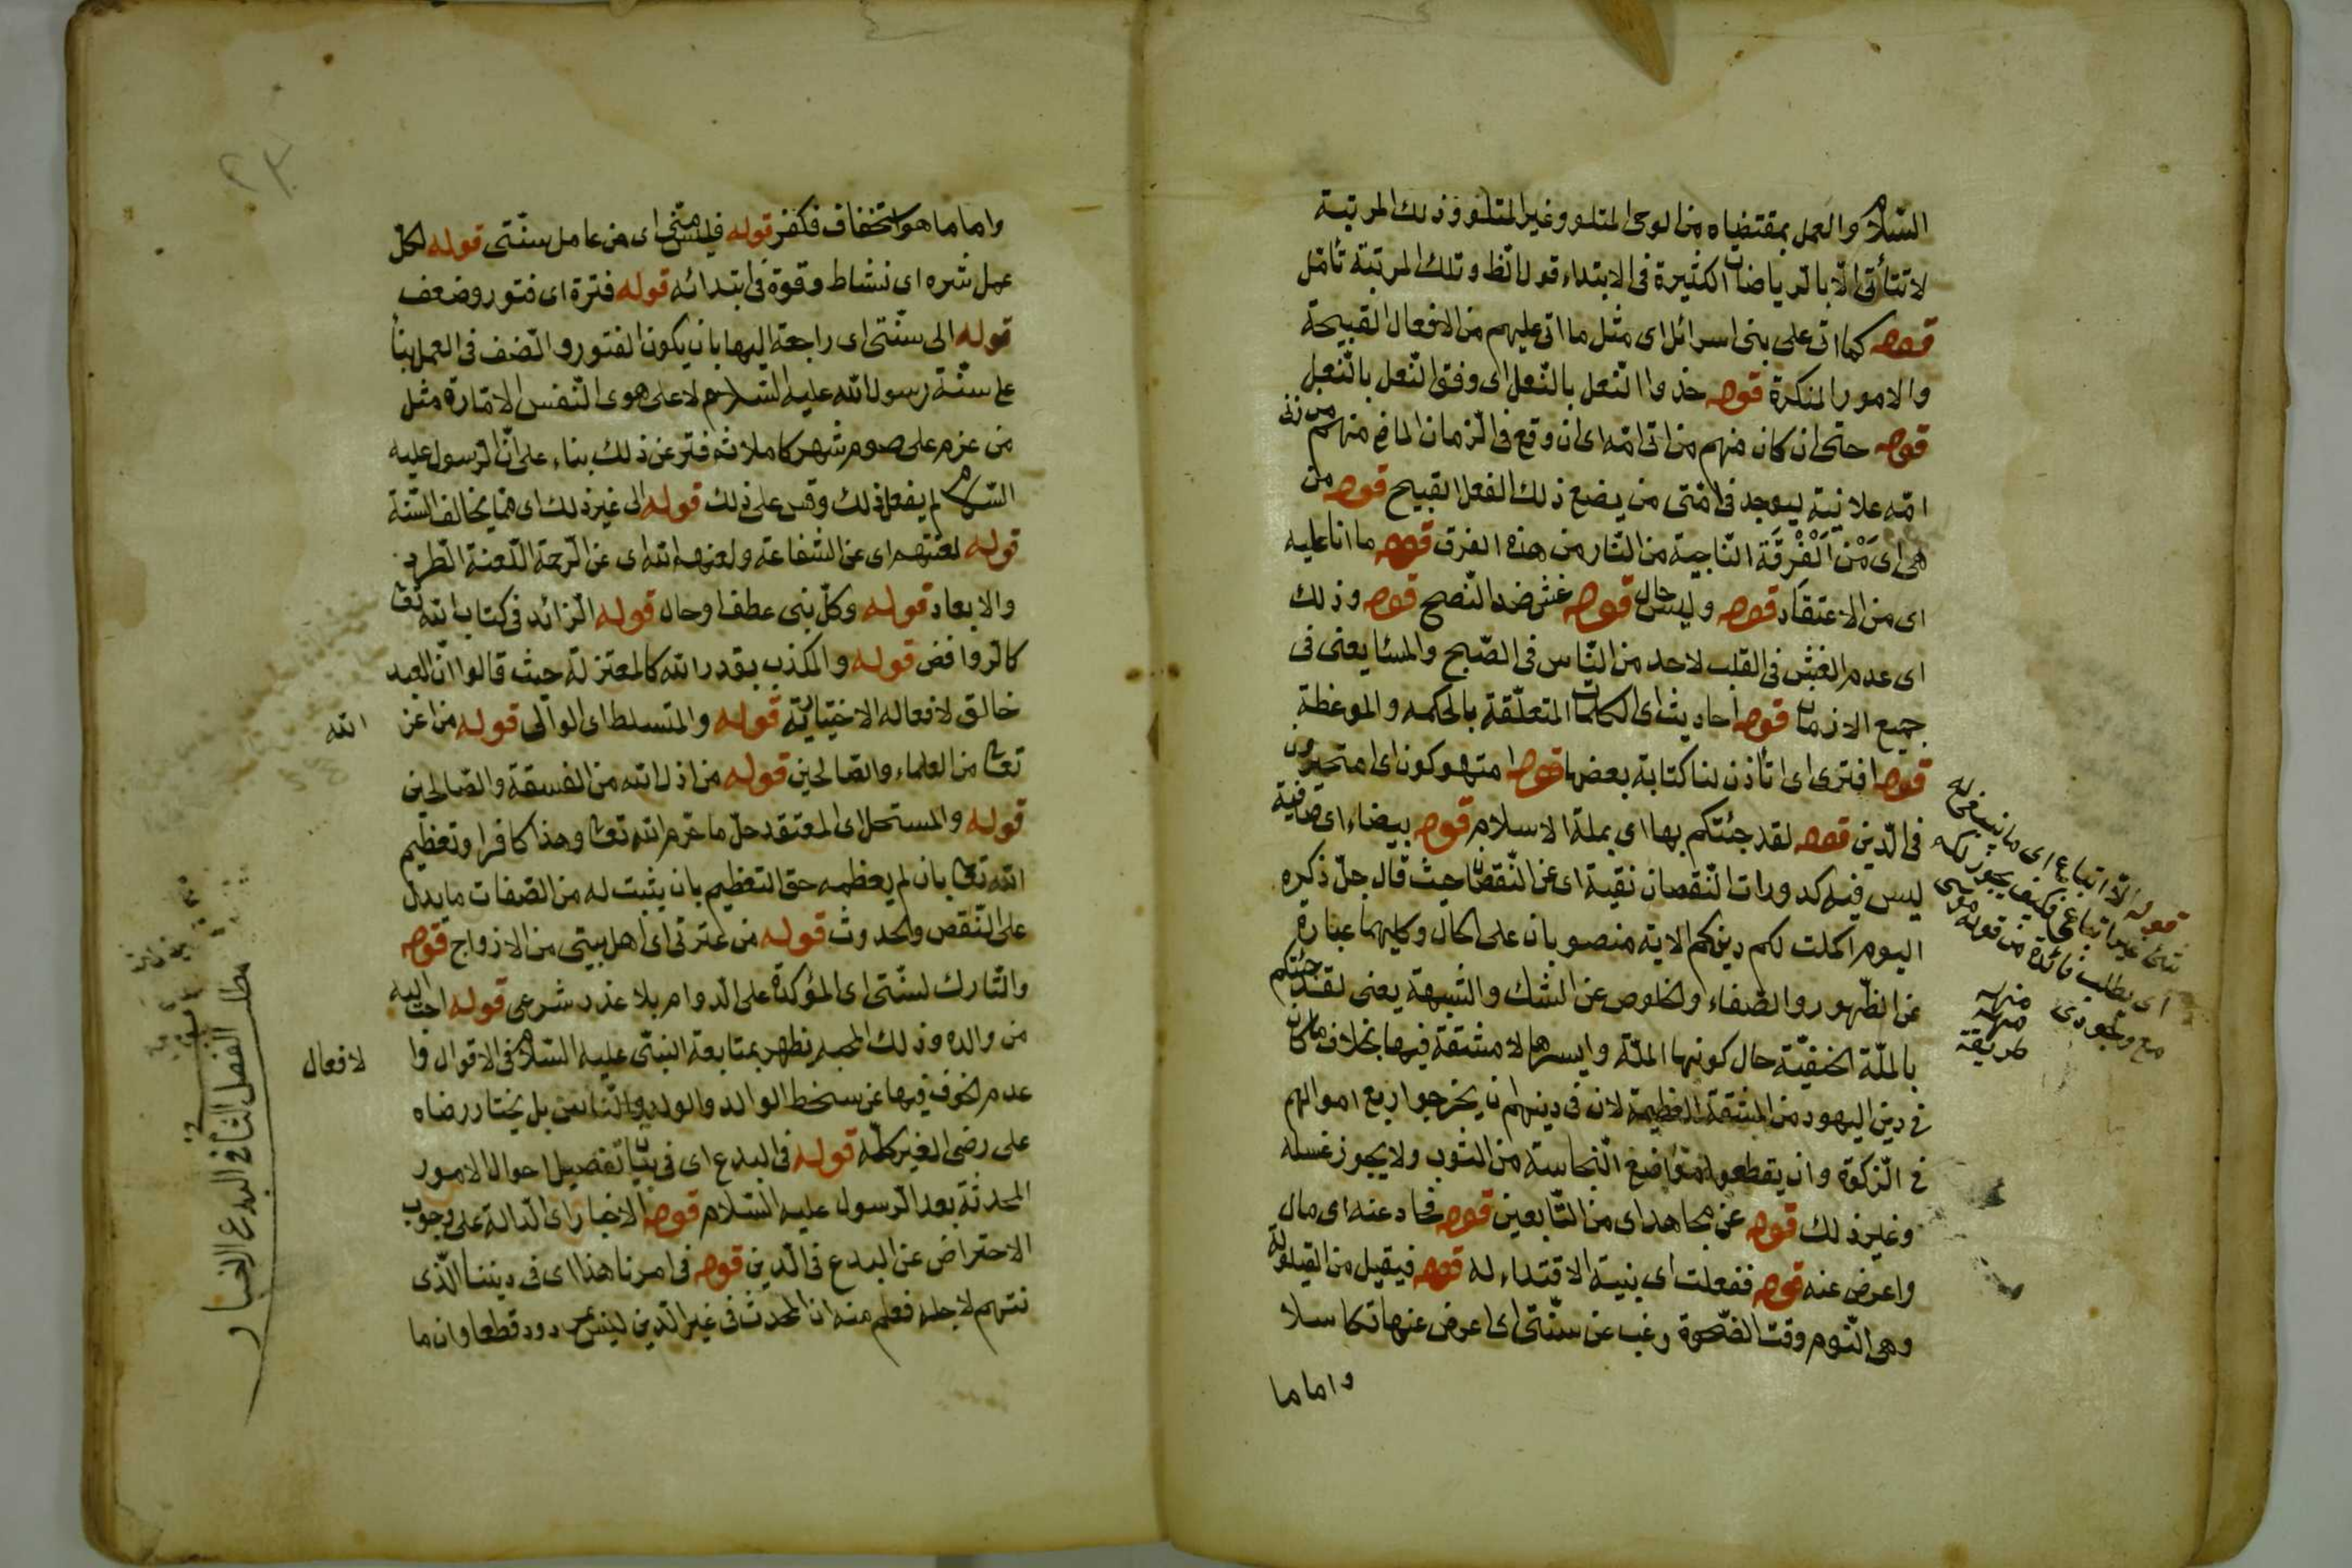 السلام والعمل بمقتضياه من الوحى المتلو وغير المتلو وذلك المرتبة
لا تتأتى الا بالرياضات الكثيرة فى الابتداء قولا نظ وتلك المرتبة تأمل
قوله كما اتى على بنى اسرائل اى مثل ما اتى عليهم من الافعال القبيحة
والامور المنكرة قوله حذوا النعل بالنعل اى وفق النعل بالنعل
قوله حتى ان كان منهم من اتى امه اى ان وقع فى الزمان الماضى منهم من زنى
امه علانية ليوجد فى امتى من يضع ذلك الفعل القبيح قوله من
هى اى مَنْ اَلْفِرْقَة الناجية من النار من هذه الفرق قوله ما انا عليه
اى من الاعتقاد قوله وليس حال قوله غش ضد النصح قوله وذلك
اى عدم الغش فى القلب لاحد من الناس فى الصبح والمسا يعنى فى
جميع الازمان قوله احاديث اى الكلمات المتعلقة بالحكمه والموعظة
قوله افترى اى اتأذن لنا كتابة بعضها قوله امتهوكون اى امتحيرون
فى الدين قوله لقد جئتكم بها اى بملة الاسلام قوله بيضاء اى صافية
ليس فيه كدورات النقصان نقية اى عن النقصان حيث قال جل ذكره
اليوم اكملت لكم دينكم الاية منصوبان على الحال وكليهما عبارة
عن الظهور والصفاء والخلوص عن الشك والشبهة يعنى لقد جئتكم
بالملة الحنفية حال كونها الملة وايسرها لا مشقة فيها بخلاف ما كان
فى دين اليهود من المشقة العظيمة لان فى دينهم ان يخرجوا ربع اموالهم
فى الزكوة وان يقطعوا مواضع النجاسة من الثوب ولا يجوز غسله
وغير ذلك قوله عن مجاهد اى من التابعين قوله فحاد عنه اى مال
واعرض عنه قوله ففعلت اى بنية الاقتداء له قوله فيقيل من القيلولة
وهى النوم وقت الضحوة رغب عن سنتى اى اعرض عنها تكاسلا
واما ما
قوله الا اتباعى اى ما ينبغى له
شئ غير اتباعى فكيف يجوز لكم
اى يطلب فائدة من قوله موسى
مع وجودى منه
منه
طريقة
٢٣
واما ما هو استخفاف فكفر قوله فليس منى اى من عامل سنتى قوله لكل
عمل شره اى نشاط وقوة فى ابتدائه قوله فترة اى فتور وضعف
قوله الى سنتى اى راجعة اليها بان يكون الفتور والضف فى العمل بنأ
على سنة رسول الله عليه السلام لا على هوى النفس الامارة مثل
من عزم على صوم شهر كاملا ثم فتر عن ذلك بناء على ان الرسول عليه
السلام لم يفعل ذلك وقس على ذلك قوله الى غير ذلك اى مما يخالف السنة
قوله لعنتهم اى عن الشفاعة ولعنهم الله اى عن الرحمة اللعنة الطرد
والابعاد قوله وكل نبى عطف او حال قوله الزائد فى كتاب الله تعا
كالروافض قوله والمكذب بقدر الله كالمعتزلة حيث قالوا ان العبد
خالق لافعاله الاختيارية قوله والمتسلط اى الوالى قوله من اعز الله
تعا من العلماء والصالحين قوله من اذل الله من الفسقة والصالحين
قوله والمستحل اى المعتقد حل ما حرم الله تعا وهذا كافر او تعظيم
الله تعا بان لم يعظمه حق التعظيم بان يثبت له من الصفات ما يدل
على النقص والحدوث قوله من عترتى اى اهل بيتى من الازواج قوله
والتارك لسنتى اى المؤكدة على الدوام بلا عذر شرعى قوله احب اليه
من والده وذلك المحبه يظهر بمتابعة النبى عليه السلام فى الاقوال وا لافعال
عدم الخوف فيها عن سخط الوالد والولد والناس بل يختار رضاه
على رضى الغير كلمه قوله فى البدع اى فى بيان تفصيل احوال الامور
المحدثة بعد الرسول عليه السلام قوله الاخبار اى الدالة على وجوب
الاحتراض عن البدع فى الدين قوله فى امرنا هذا اى فى ديننا الذى
نتهم لاجله فعلم منه ان المحدث فى غير الدين ليس مردود قطعا وان ما
مطلب الفصل الثانى فى البدع الاخبار